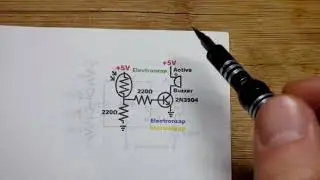 +5V
+5V
Electronzap
Active
Buzzer
220Ω
2N3904
220Ω
Electronzap